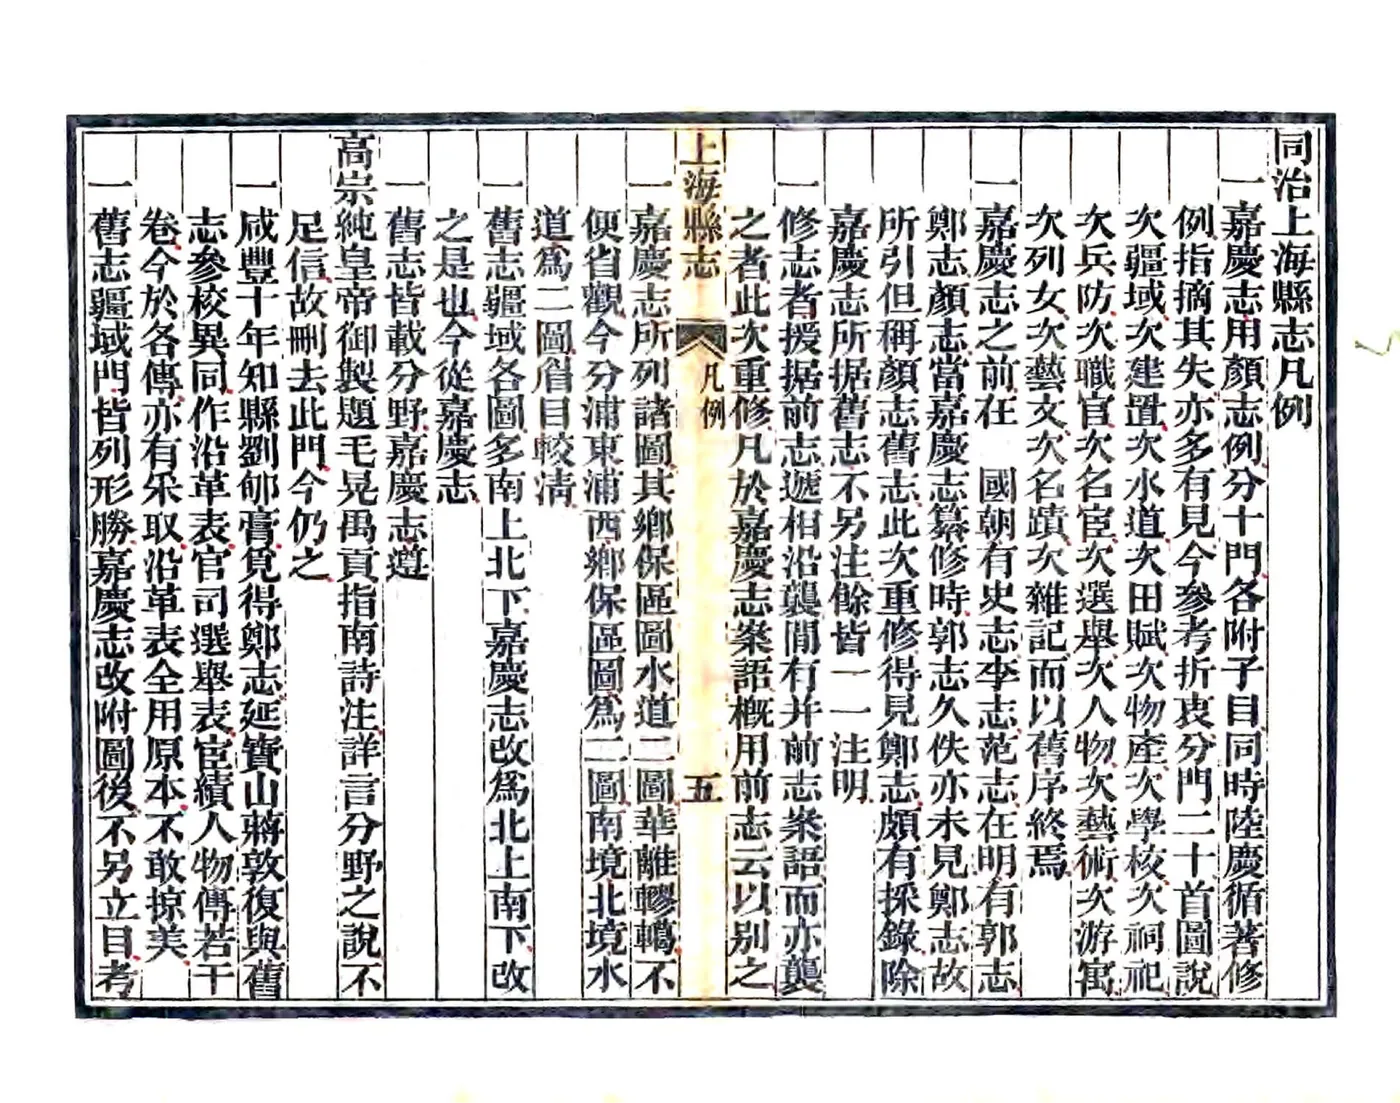 同治上海縣志凡例
一嘉慶志用顏志例分十門各附子目同時陸慶循著修
例指摘其失亦多有見今參考折衷分門二十首圖說
次疆域次建置次水道次田賦次物產次學校次祠祀
次兵防次職官次名宦次選舉次人物次藝術次游寓
次列女次藝文次名蹟次雜記而以舊序終焉
一嘉慶志之前在　國朝有史志李志范志在明有郭志
鄭志顏志當嘉慶志纂修時郭志久佚亦未見鄭志故
所引但稱顏志舊志此次重修得見鄭志頗有採錄除
嘉慶志所据舊志不另注餘皆一一注明
一修志者援据前志遞相沿襲閒有并前志案語而亦襲
之者此次重修凡於嘉慶志案語槪用前志云以別之
上海縣志　凡例　五
一嘉慶志所列諸圖其鄉保區圖水道二圖華離轇轕不
便省觀今分浦東浦西鄉保區圖爲二圖南境北境水
道爲二圖眉目較淸
一舊志疆域各圖多南上北下嘉慶志改爲北上南下改
之是也今從嘉慶志
一舊志皆載分野嘉慶志遵
高宗純皇帝御製題毛晃禹貢指南詩注詳言分野之說不
足信故刪去此門今仍之
一咸豐十年知縣劉郇膏覓得鄭志延寶山蔣敦復與舊
志參校異同作沿革表官司選舉表宦績人物傳若干
卷今於各傳亦有采取沿革表全用原本不敢掠美
一舊志疆域門皆列形勝嘉慶志改附圖後不另立目考